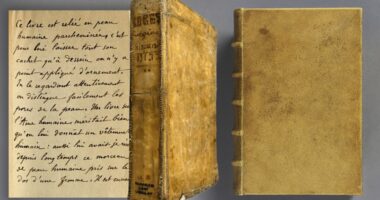 Ce livre est relié en peau
humaine parcheminée, c'est
pour lui laisser tout son
cachet qu'à dessein on n'y a
point appliqué d'ornement.
En le regardant attentivement
on distingue facilement les
pores de la peau. Un livre sur
l'Ame humaine méritait bien
qu'on lui donnât un vêtement
humain : aussi lui avais je
depuis longtemps ce morceau
de peau humaine pris sur le
dos d'une femme. Il est